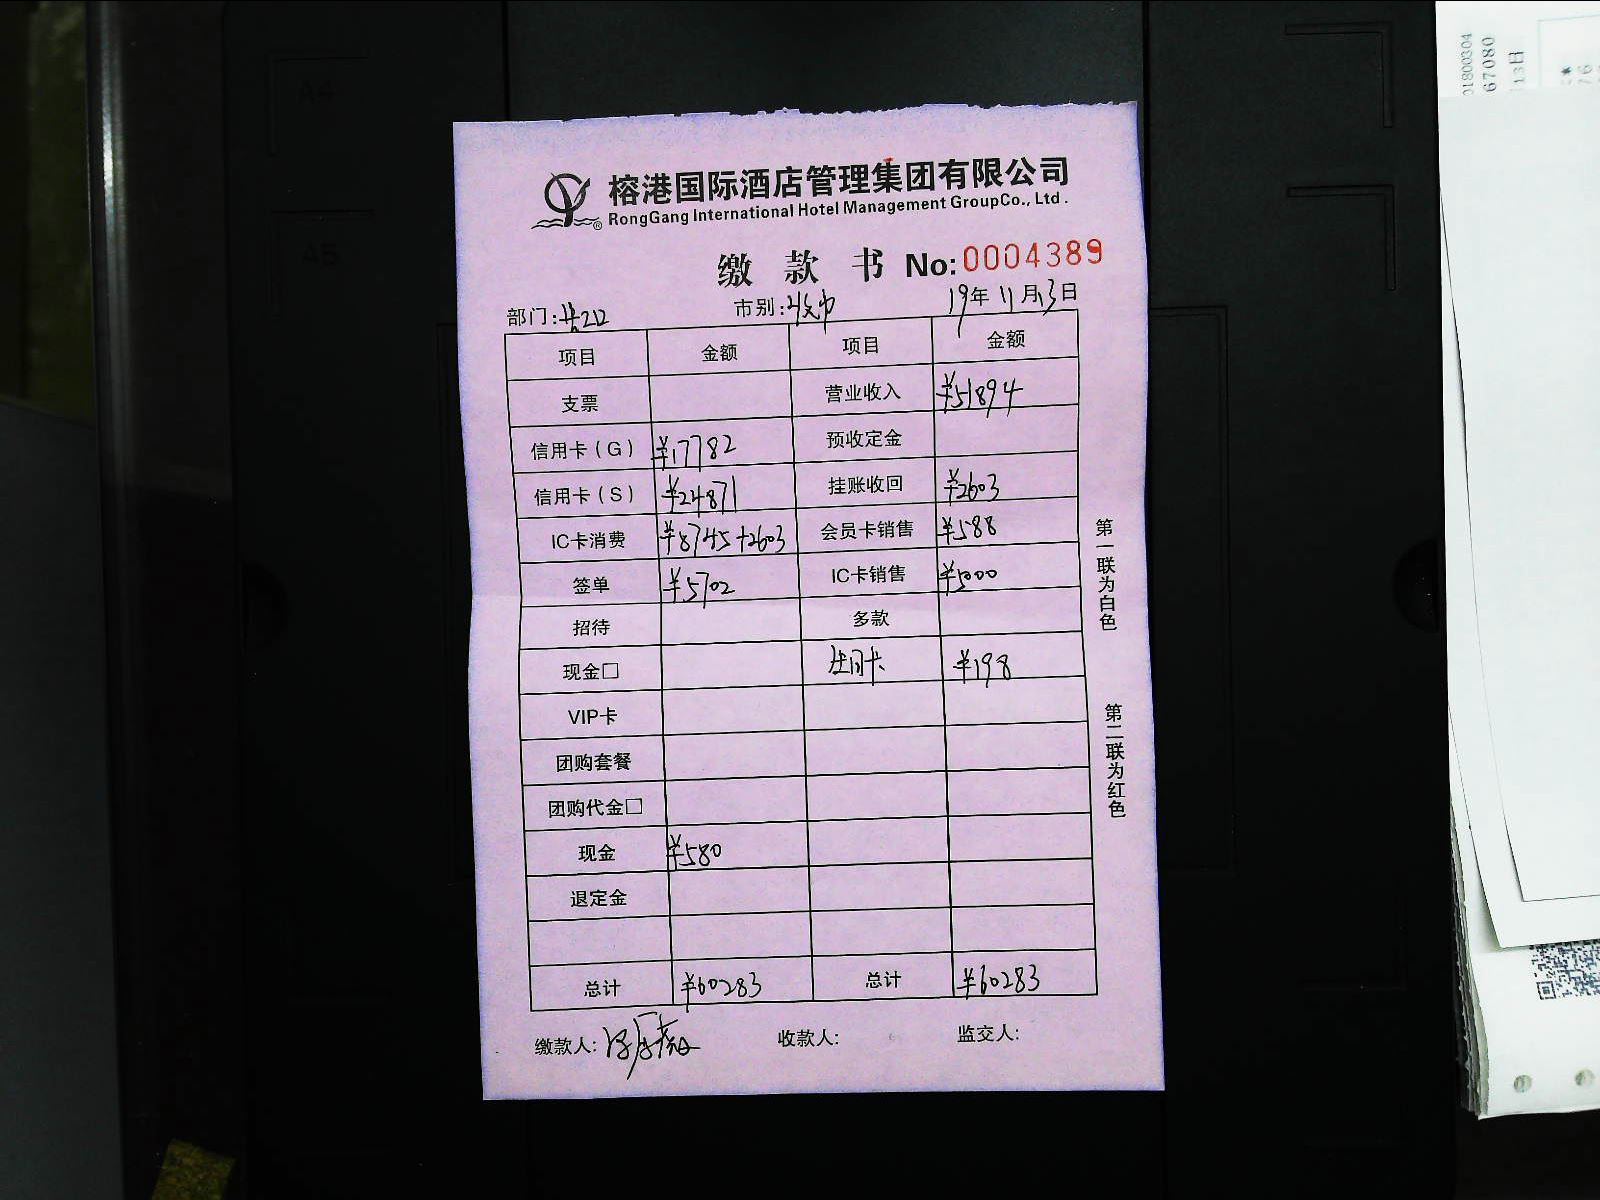 榕港国际酒店管理集团有限公司
RongGang International Hotel Management GroupCo., Ltd.
缴款书 No:0004389
部门: 市别: 19年11月13日
项目 金额 项目 金额
支票 营业收入 ¥51894
信用卡(G) ¥17782 预收定金
信用卡(S) ¥24871 挂账收回 ¥2603
IC卡消费 ¥8745+2603 会员卡销售 ¥588
签单 ¥5702 IC卡销售 ¥5000
招待 多款
现金□ ¥198
VIP卡
团购套餐
团购代金□
现金 ¥580
退定金
总计 ¥60283 总计 ¥60283
缴款人: 收款人: 监交人:
第一联为白色
第二联为红色
A4
A5
01800304
67080
13日